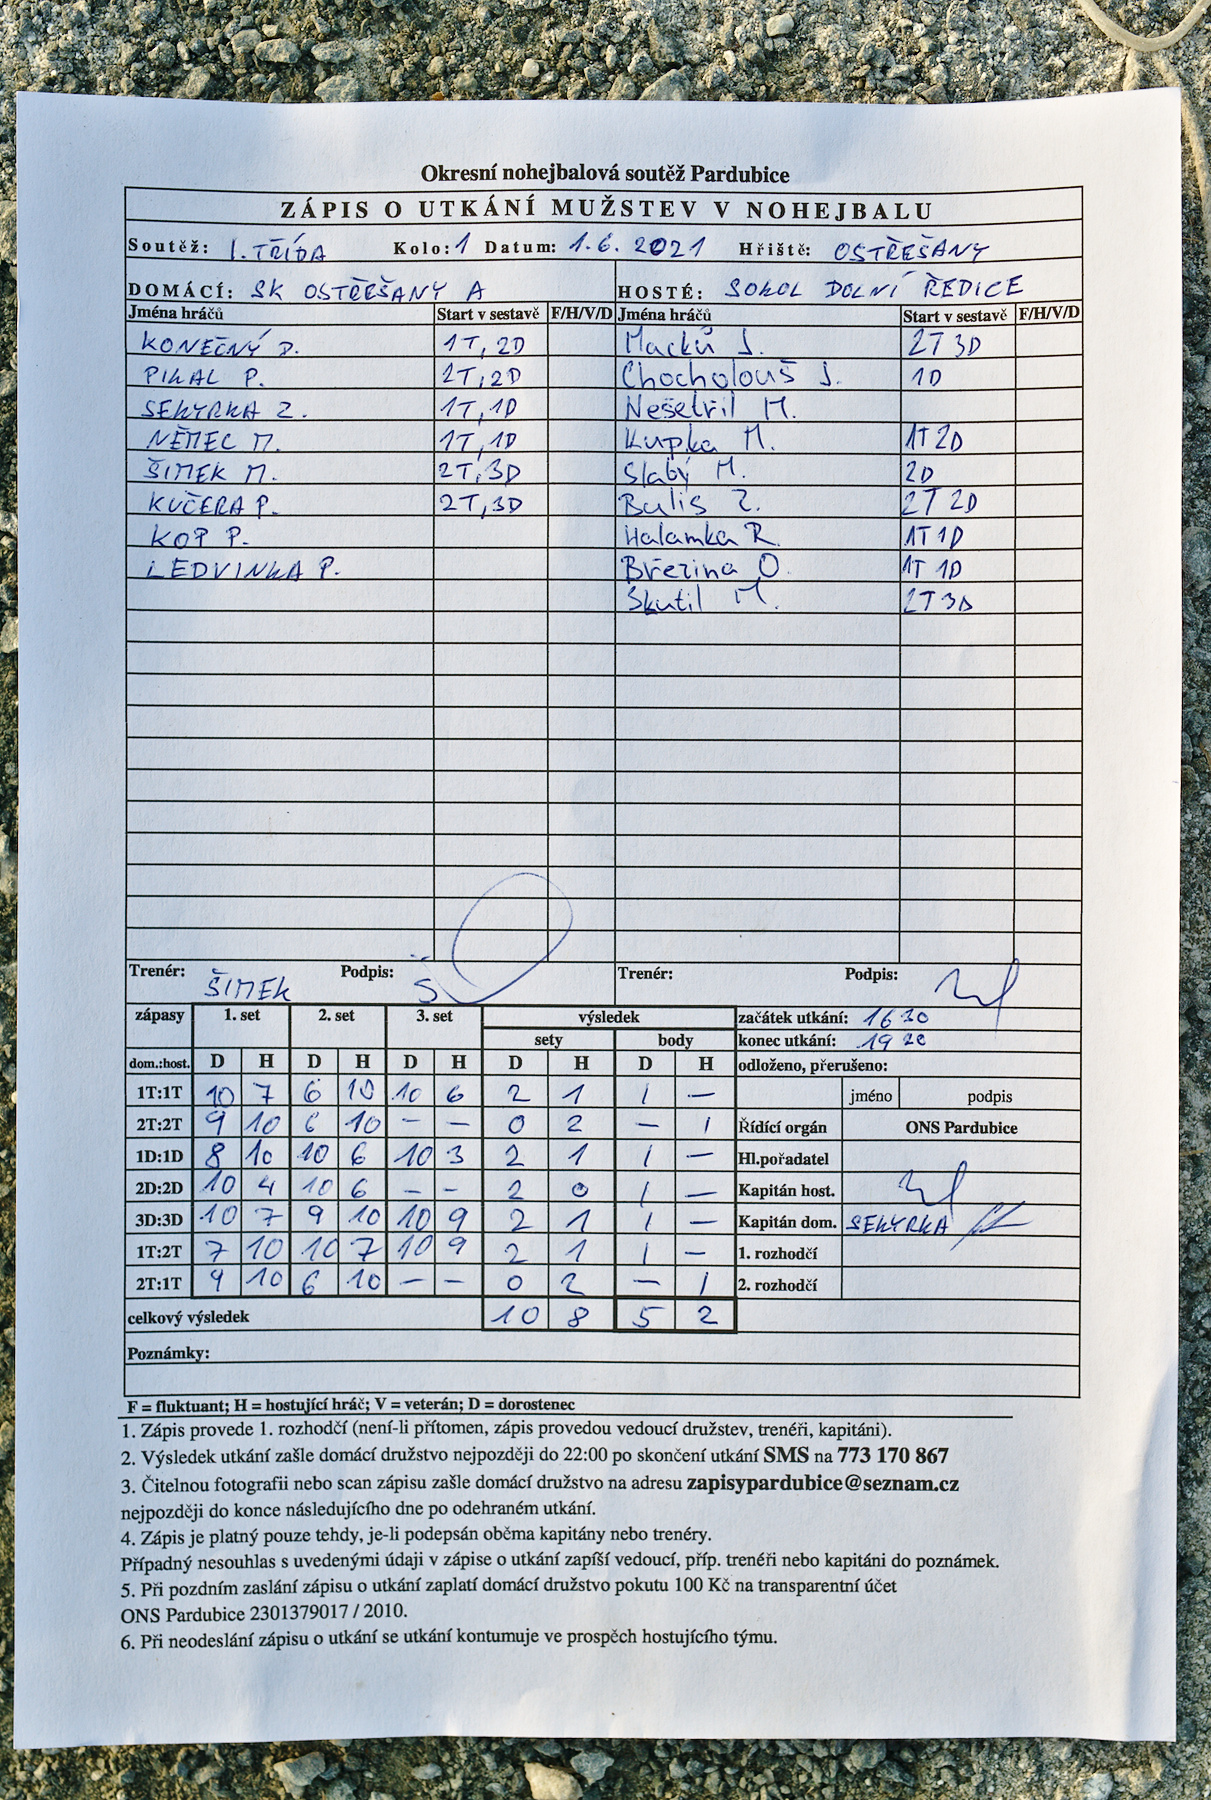 Okresní nohejbalová soutěž Pardubice
ZÁPIS O UTKÁNÍ MUŽSTEV V NOHEJBALU
Soutěž: 1. TŘÍDA Kolo: 1 Datum: 1.6. 2021 Hřiště: OSTŘEŠANY
DOMÁCÍ: SK OSTŘEŠANY A HOSTÉ: SOKOL DOLNÍ ŘEDICE
Jména hráčů Start v sestavě F/H/V/D Jména hráčů Start v sestavě F/H/V/D
KONEČNÝ D. 1T, 2D Macků J. 2T 3D
PIKAL P. 2T, 2D Chocholouš J. 1D
SEKYRKA Z. 1T, 1D Nešetřil M.
NĚMEC M. 1T, 1D Kupka M. 1T 2D
ŠIMEK M. 2T, 3D Slabý M. 2D
KUČERA P. 2T, 3D Bulis Z. 2T 2D
KOP P. Halamka R. 1T 1D
LEDVINKA P. Březina O. 1T 1D
Škutil M. 2T 3D
Trenér: ŠIMEK Podpis: Š Trenér: Podpis:
zápasy 1. set 2. set 3. set výsledek začátek utkání: 16 30
sety body konec utkání: 19 20
dom.:host. D H D H D H D H D H odloženo, přerušeno:
1T:1T 10 7 6 10 10 6 2 1 1 — jméno podpis
2T:2T 9 10 6 10 — — 0 2 — 1 Řídící orgán ONS Pardubice
1D:1D 8 10 10 6 10 3 2 1 1 — Hl.pořadatel
2D:2D 10 4 10 6 — — 2 0 1 — Kapitán host.
3D:3D 10 7 9 10 10 9 2 1 1 — Kapitán dom. SEKYRKA
1T:2T 7 10 10 7 10 9 2 1 1 — 1. rozhodčí
2T:1T 9 10 6 10 — — 0 2 — 1 2. rozhodčí
celkový výsledek 10 8 5 2
Poznámky:
F = fluktuant; H = hostující hráč; V = veterán; D = dorostenec
1. Zápis provede 1. rozhodčí (není-li přítomen, zápis provedou vedoucí družstev, trenéři, kapitáni).
2. Výsledek utkání zašle domácí družstvo nejpozději do 22:00 po skončení utkání SMS na 773 170 867
3. Čitelnou fotografii nebo scan zápisu zašle domácí družstvo na adresu zapisypardubice@seznam.cz
nejpozději do konce následujícího dne po odehraném utkání.
4. Zápis je platný pouze tehdy, je-li podepsán oběma kapitány nebo trenéry.
Případný nesouhlas s uvedenými údaji v zápise o utkání zapíší vedoucí, příp. trenéři nebo kapitáni do poznámek.
5. Při pozdním zaslání zápisu o utkání zaplatí domácí družstvo pokutu 100 Kč na transparentní účet
ONS Pardubice 2301379017 / 2010.
6. Při neodeslání zápisu o utkání se utkání kontumuje ve prospěch hostujícího týmu.